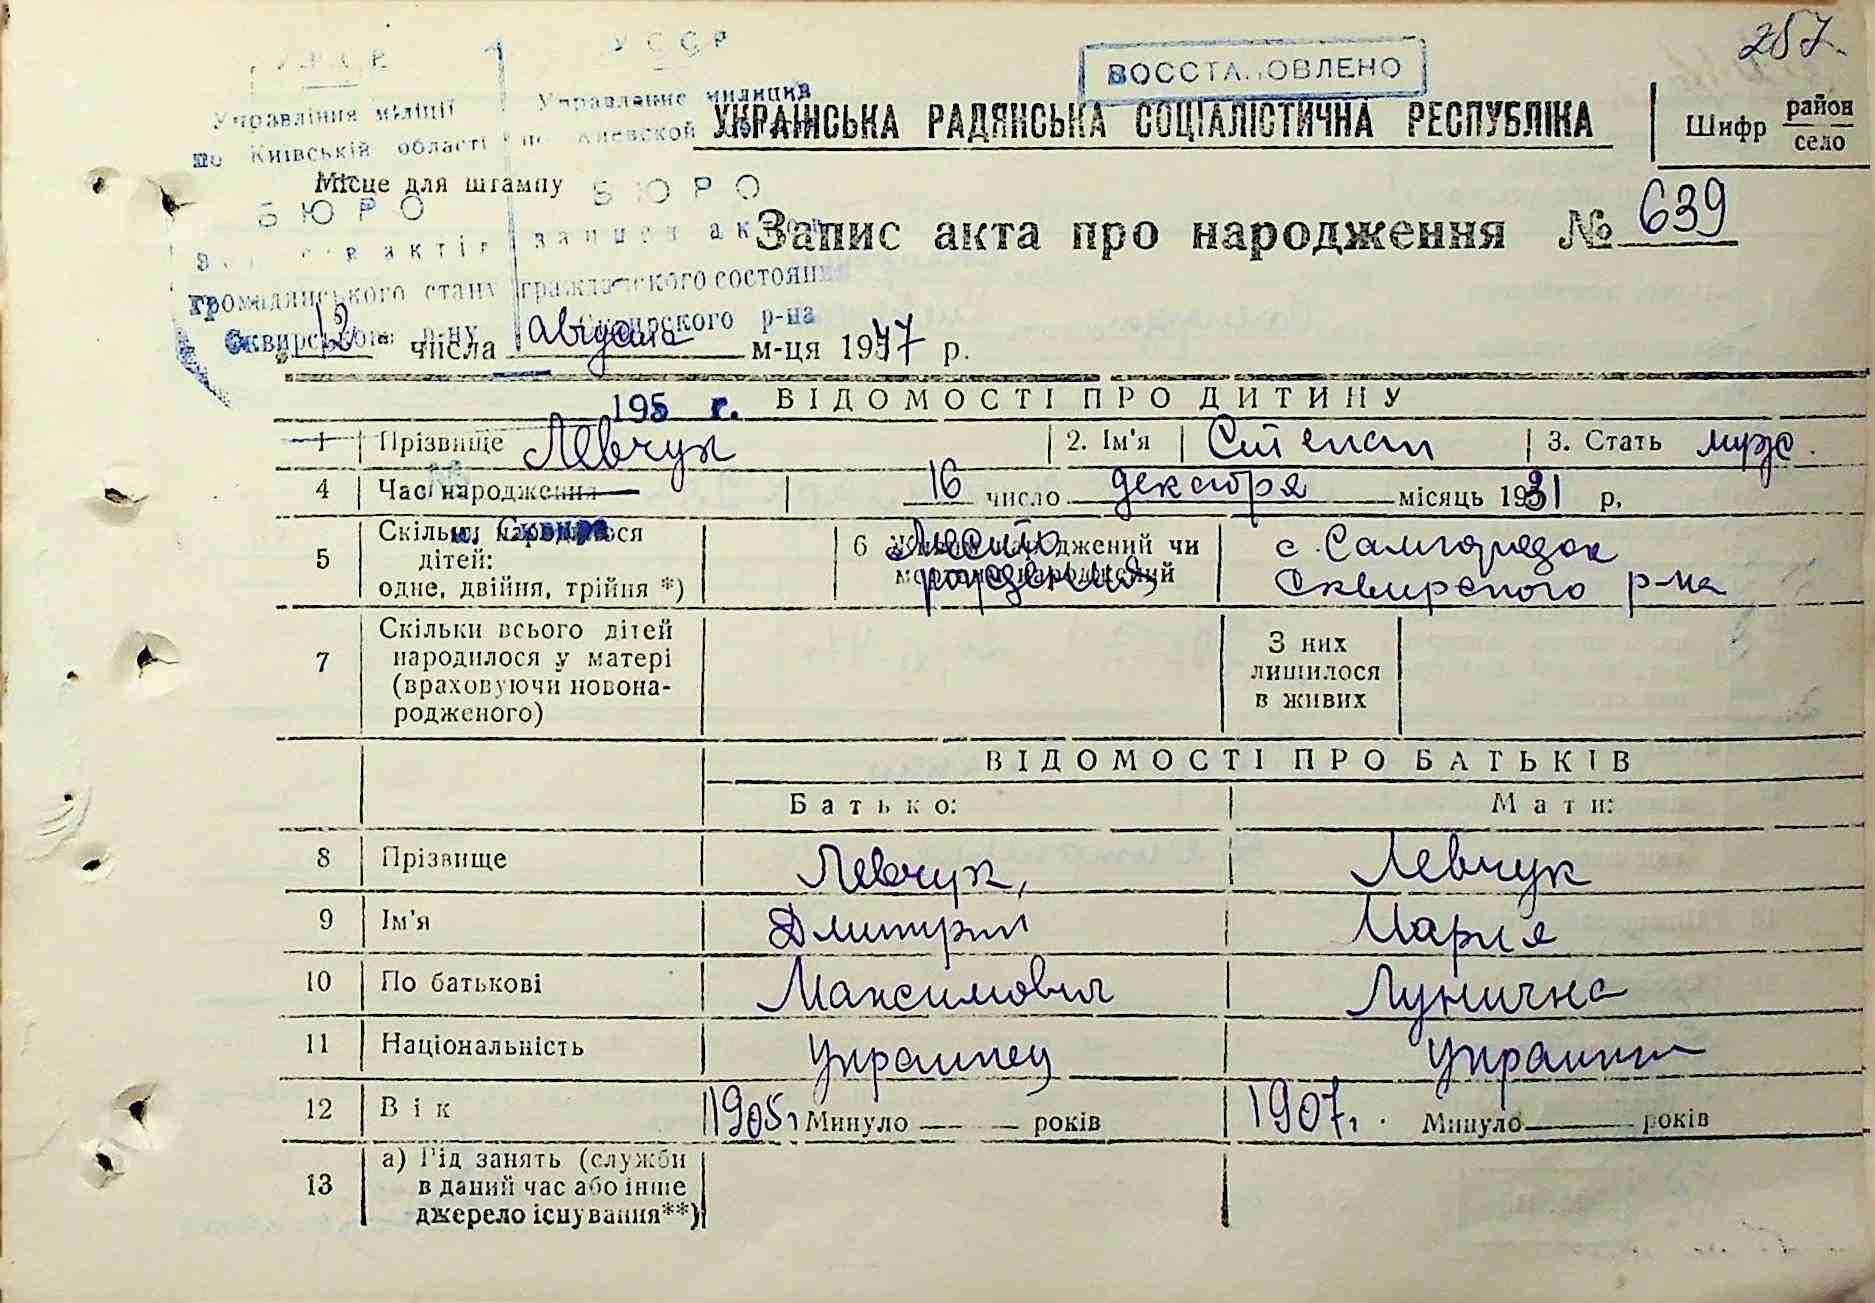 257.
ВОССТАНОВЛЕНО
УССР УССР
Управління міліції Управление милиции
по Київській області по Киевской
УКРАЇНСЬКА РАДЯНСЬКА СОЦІАЛІСТИЧНА РЕСПУБЛІКА
Шифр район село
Місце для штампу
БЮРО БЮРО
Запис акта про народження № 639
актів записи актов
громадянського стану гражданского состояния
Сквирського р-ну Сквирского р-на
12 числа августа м-ця 1977 р.
195 г.
ВІДОМОСТІ ПРО ДИТИНУ
1 Прізвище Левчук 2. Ім'я Степан 3. Стать муж.
4 Час народження 16 число декабря місяць 1931 р.
м. Сквира
5 Скільки народилося дітей: одне, двійня, трійня *)
6 Живонароджений чи мертвонароджений
Место рождения
с. Самгородок
Сквирского р-на
7 Скільки всього дітей народилося у матері (враховуючи новонародженого)
З них лишилося в живих
ВІДОМОСТІ ПРО БАТЬКІВ
Батько: Мати:
8 Прізвище Левчук, Левчук
9 Ім'я Дмитрий Мария
10 По батькові Максимович Лунична
11 Національність Украинец Украинка
12 Вік 1905г Минуло років 1907г. Минуло років
13 а) Рід занять (служби в даний час або інше джерело існування**)